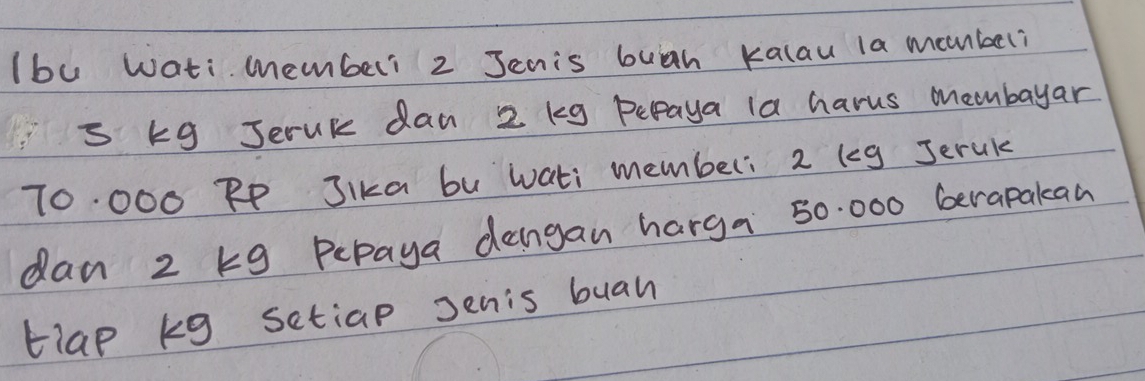 Ibu Wati membeli 2 Jenis buah kalau ia membeli
3 kg Jeruk dan 2 kg Pepaya ia harus membayar
70.000 RP Jika bu wati membeli 2 kg Jeruk
dan 2 kg Pepaya dengan harga 50.000 berapakah
tiap kg setiap Jenis buah